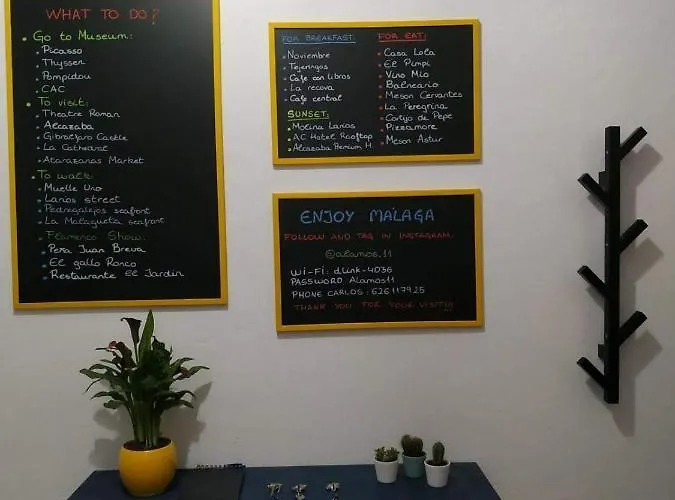 WHAT TO DO?
Go to Museum:
Picasso
Thyssen
Pompidou
CAC
To visit:
Theatre Roman
Alcazaba
Gibralfaro Castle
La Cathedral
Atarazanas Market
To walk
Muelle Uno
Larios street
Pedregalejos seafront
La Malagueta seafront
Flamenco Show:
Peña Juan Breva
El gallo Ronco
Restaurante El Jardin
FOR BREAKFAST:
Noviembre
Tejeringos
Cafe con Libros
La recova
Cafe central
SUNSET:
Molina Larios
AC Hotel Rooftop
Alcazaba Premium H.
FOR EAT:
Casa Lola
El Pimpi
Vino Mio
Balneario
Meson Cervantes
La Peregrina
Cortijo de Pepe
Pizzamore
Meson Astur
ENJOY MÁLAGA
FOLLOW AND TAG IN INSTAGRAM
@alamos_11
Wi-Fi: dlink-4036
PASSWORD Alamos11
PHONE CARLOS: 626117925
THANK YOU FOR YOUR VISIT!!!